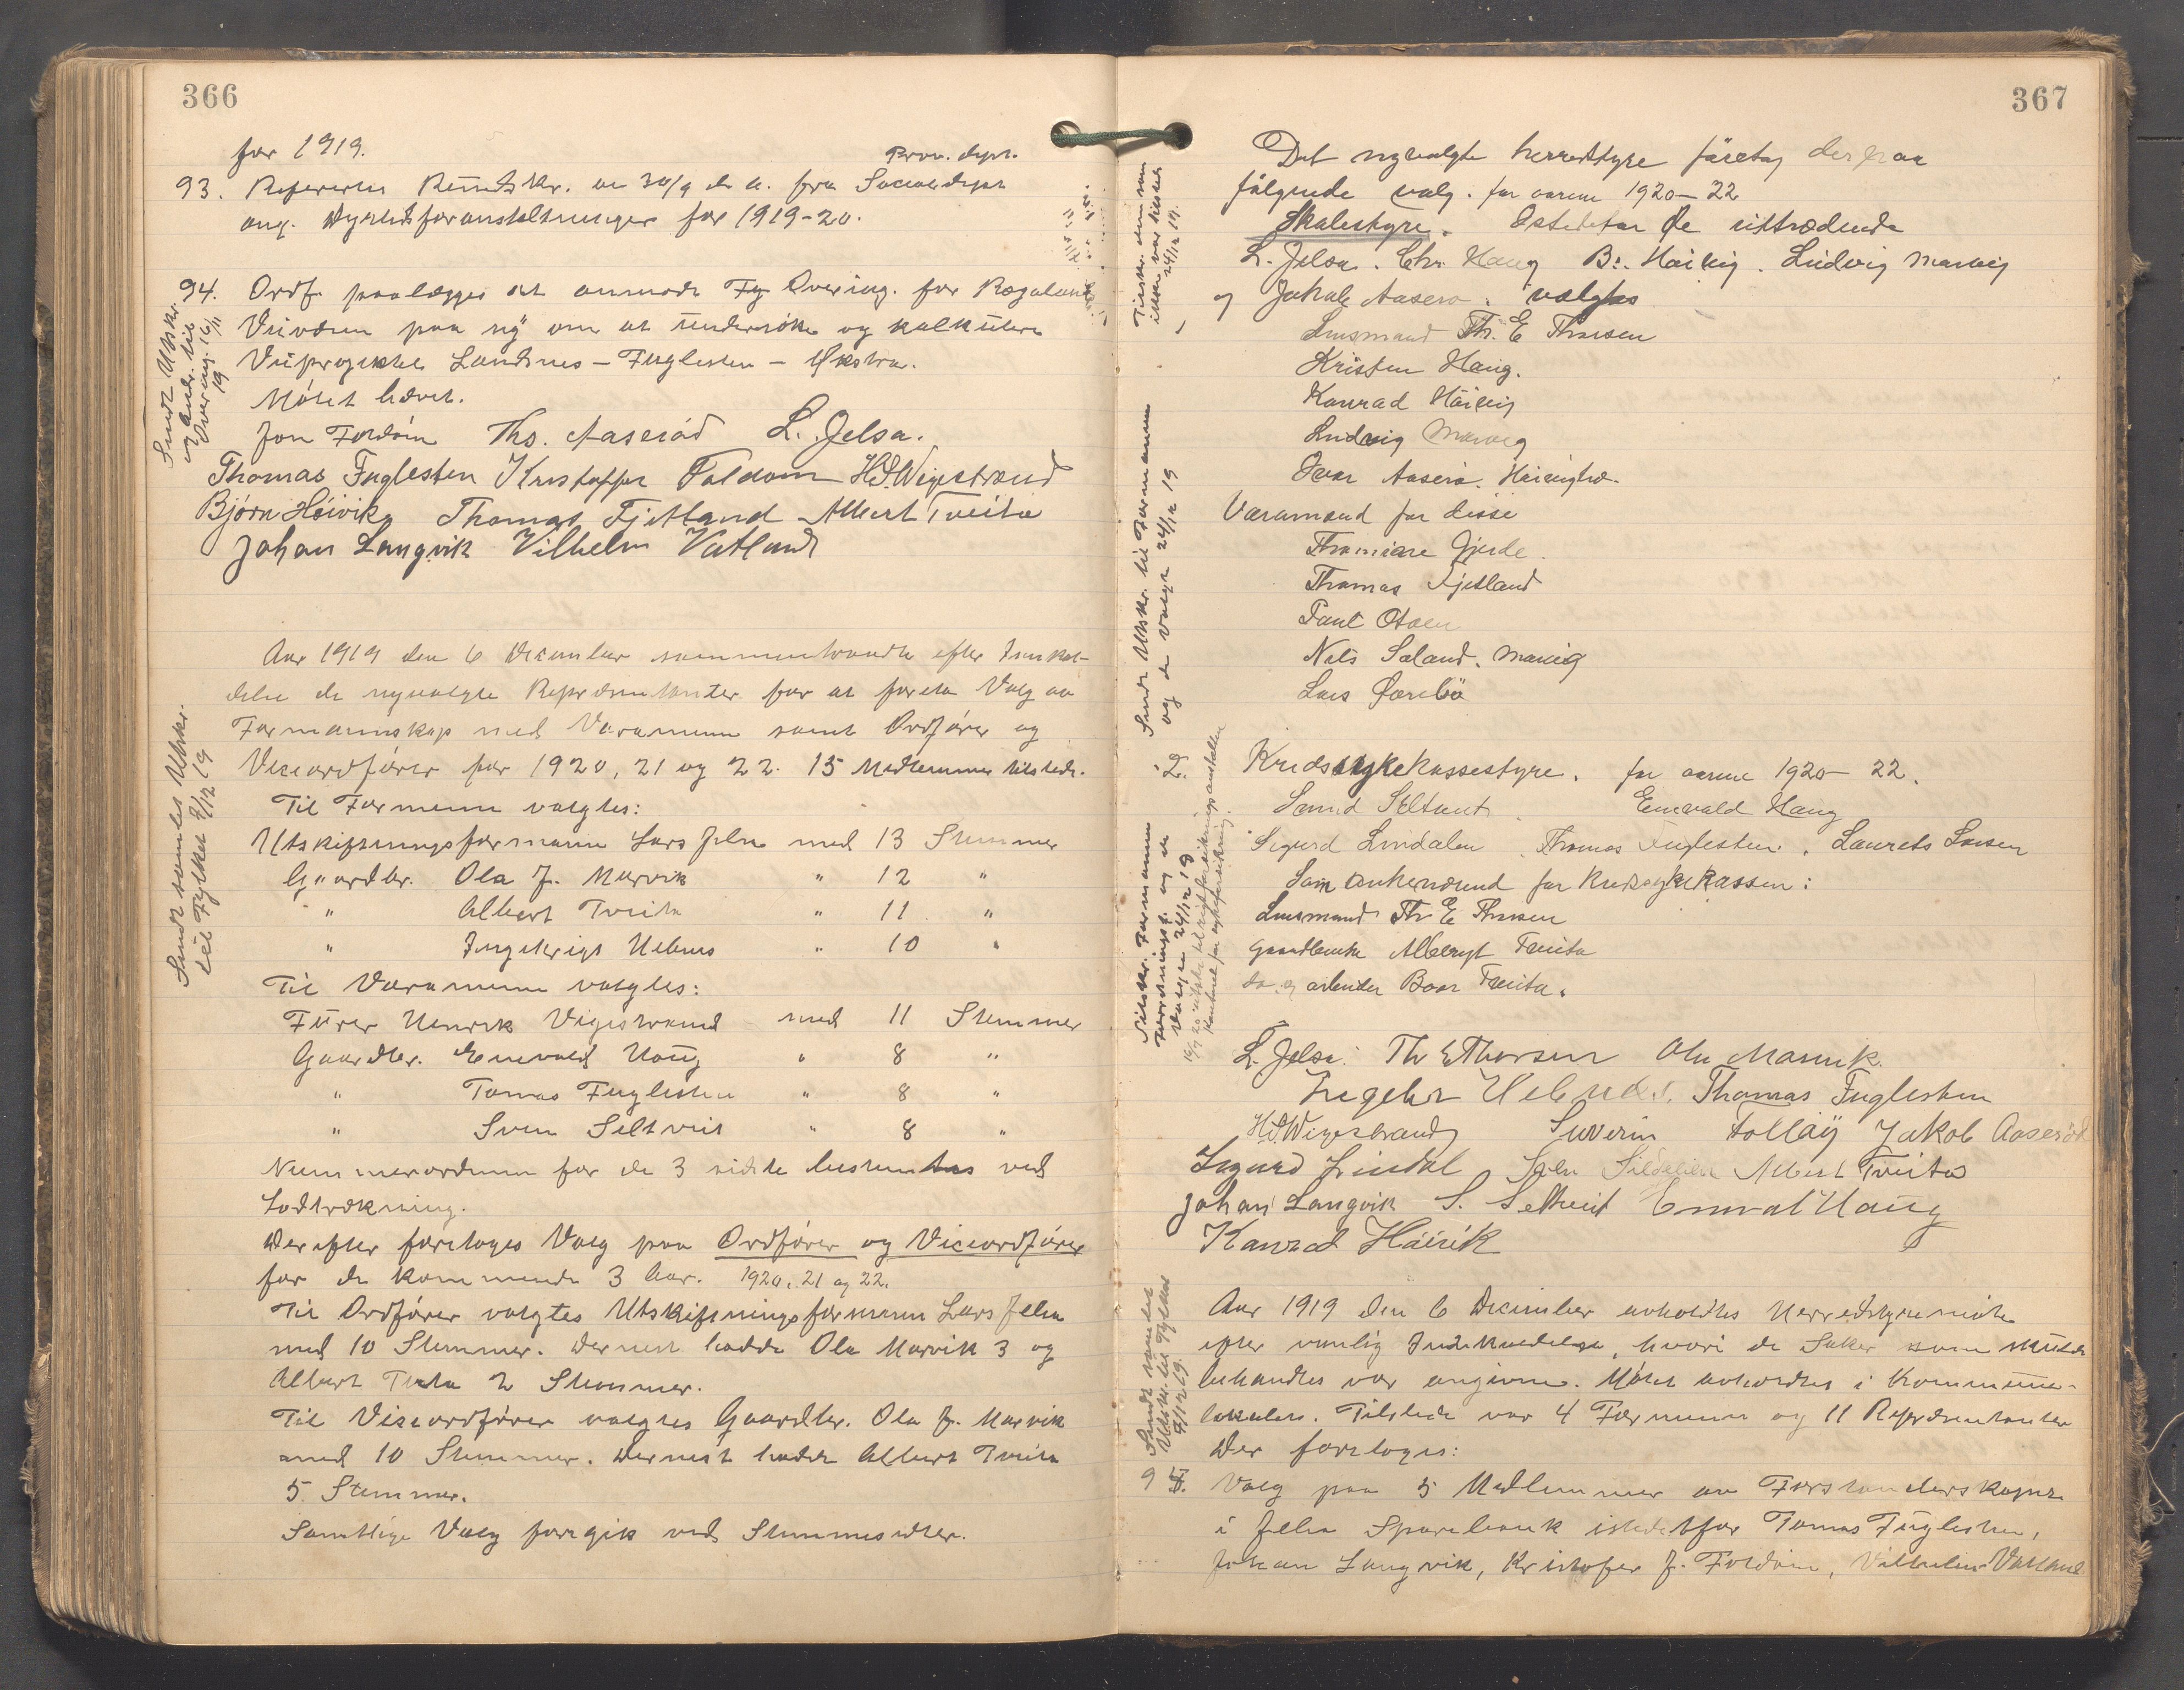 366
for 1919.
Prov. dept.
93. Refereertes Rundskr. av 30/9 d. a. fra Socialdept
ang. Dyrtidsforanstaltninger for 1919-20.
Sendt Utskr.
og andr. til
Overing. 16/11
19
94. Ordf. paalægges at anmode Fg. Overing. for Rogaland
Veivæsen paa ny om at undersøke og kalkulere
Veiprojektet Landsnes - Fuglesten - Økstra.
Møtet hævet.
Jon Foldöin Ths. Aaseröd L. Jelsa.
Thomas Fuglesten Kristoffer Foldoen H.S. Wigestrand
Björn Höivik Thomas Fjetland Albert Tveita
Johan Langvik Vilhelm Vatland
Aar 1919 den 6 December sammentraadte efter Inkal-
delse de nyvalgte Repræsentanter for at foreta Valg av
Formannskap med Varamenn samt Ordfører og
Viceordfører for 1920, 21 og 22. 15 Medlemmer tilstede.
Sendt samlet Utskr.
til Fylket 9/12 19
Til Formenn valgtes:
Utskiftningsformann Lars Jelsa med 13 Stemmer
Gaardbr. Ola J. Marvik " 12 "
" Albert Tveita " 11 "
" Ingebrigt Hebnes " 10 "
Til Varamenn valgtes:
Fürer Henrik Vigestrand med 11 Stemmer
Gaardbr. Enevald Haug " 8 "
" Tomas Fuglesten " 8 "
" Sven Seltveit " 8 "
Nummerordenen for de 3 sidste bestemtes ved
Lodtrækning.
Derefter foretoges Valg paa Ordfører og Viceordfører
for de kommende 3 Aar. 1920, 21 og 22.
Til Ordfører valgtes Utskiftningsformann Lars Jelsa
med 10 Stemmer. Dernest hadde Ola Marvik 3 og
Albert Tveita 2 Stemmer.
Til Viseordfører valgtes Gaardbr. Ola J. Marvik
med 10 Stemmer. Dernest hadde Albert Tveita
5 Stemmer.
Samtlige Valg foregik ved Stemmesedler.
367
Det nyvalgte herredstyre företog derpaa
følgende valg. for aarene 1920-22
Tilskr. dem som
ikke var tilstede
24/12 19.
Skolestyre. Istedetfor de uttrædende
L. Jelsa. Chr. Haug B. Höivig. Ludvig Marvig
og Jakob Aaserö. valgtes
Lensmand Th. E Thorsen
Kristen Haug.
Konrad Höivig
Ludvig Marvig
Ivar Aaserö. Höivigtræ.
Sendt Utskr. til Formannen
og de valgte 24/12 19
Varamænd for disse
Thomine Gjerde.
Thomas Fjetland
Paul Olsen
Nils Saland. Marvig
Lars Overbö
2. Kredssykekassestyre. for aarene 1920-22.
Svend Seltveit. Enevald Haug
Sigurd Lindalen. Thomas Fuglesten. Laurets Larsen
Som ankenævnd for Kredssykekassen:
Lensmand Th E Thorsen
Gaardbruker Albregt Tveita
do. og arbeider Boar Tveita.
Tilskr. Formannen
og de
valgte 24/12 19
L. Jelsa. Th E Thorsen Ola Marvik.
Ingebr Hebnes. Thomas Fuglesten
H.S. Wigestrand Severin Folløy Jakob Aaseröd
Sigurd Lindal Albert Tveita
Johan Langvik S. Seltveit Enevald Haug
Konrad Höivik
Sendt samlet
Utskr. til Fylket
9/12 19.
Aar 1919 den 6 December avholdtes Herredstyremøte
efter vanlig Indkaldelse, hvori de Saker som skulde
behandles var angivne. Møtet avholdtes i Kommune-
lokalet. Tilstede var 4 Formenn og 11 Repræsentanter
Der foretoges:
95. Valg paa 5 Medlemmer av Forstanderskapet
i Jelsa Sparebank istedetfor Tomas Fuglesten,
Johan Langvik, Kristofer J. Foldöin, Vilhelm Vatland